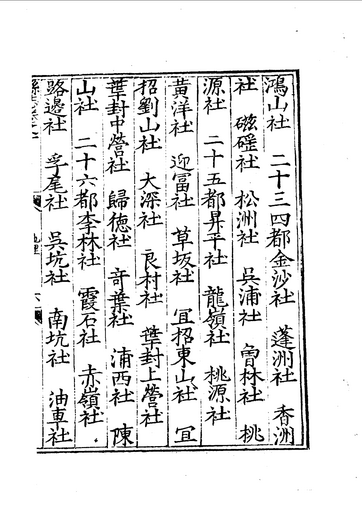 鴻山社　二十三四都金沙社　蓬洲社　香洲
社　磁礶社　松洲社　吳浦社　曾林社　桃
源社　二十五都昇平社　龍嶺社　桃源社
黃洋社　迎富社　草坂社　宜招東山社　宜
招劉山社　大深社　良村社　葉封上營社
葉封中營社　歸德社　奇葉社　浦西社　陳
山社　二十六都李林社　霞石社　赤嶺社
路邊社　孚尾社　吳坑社　南坑社　油車社